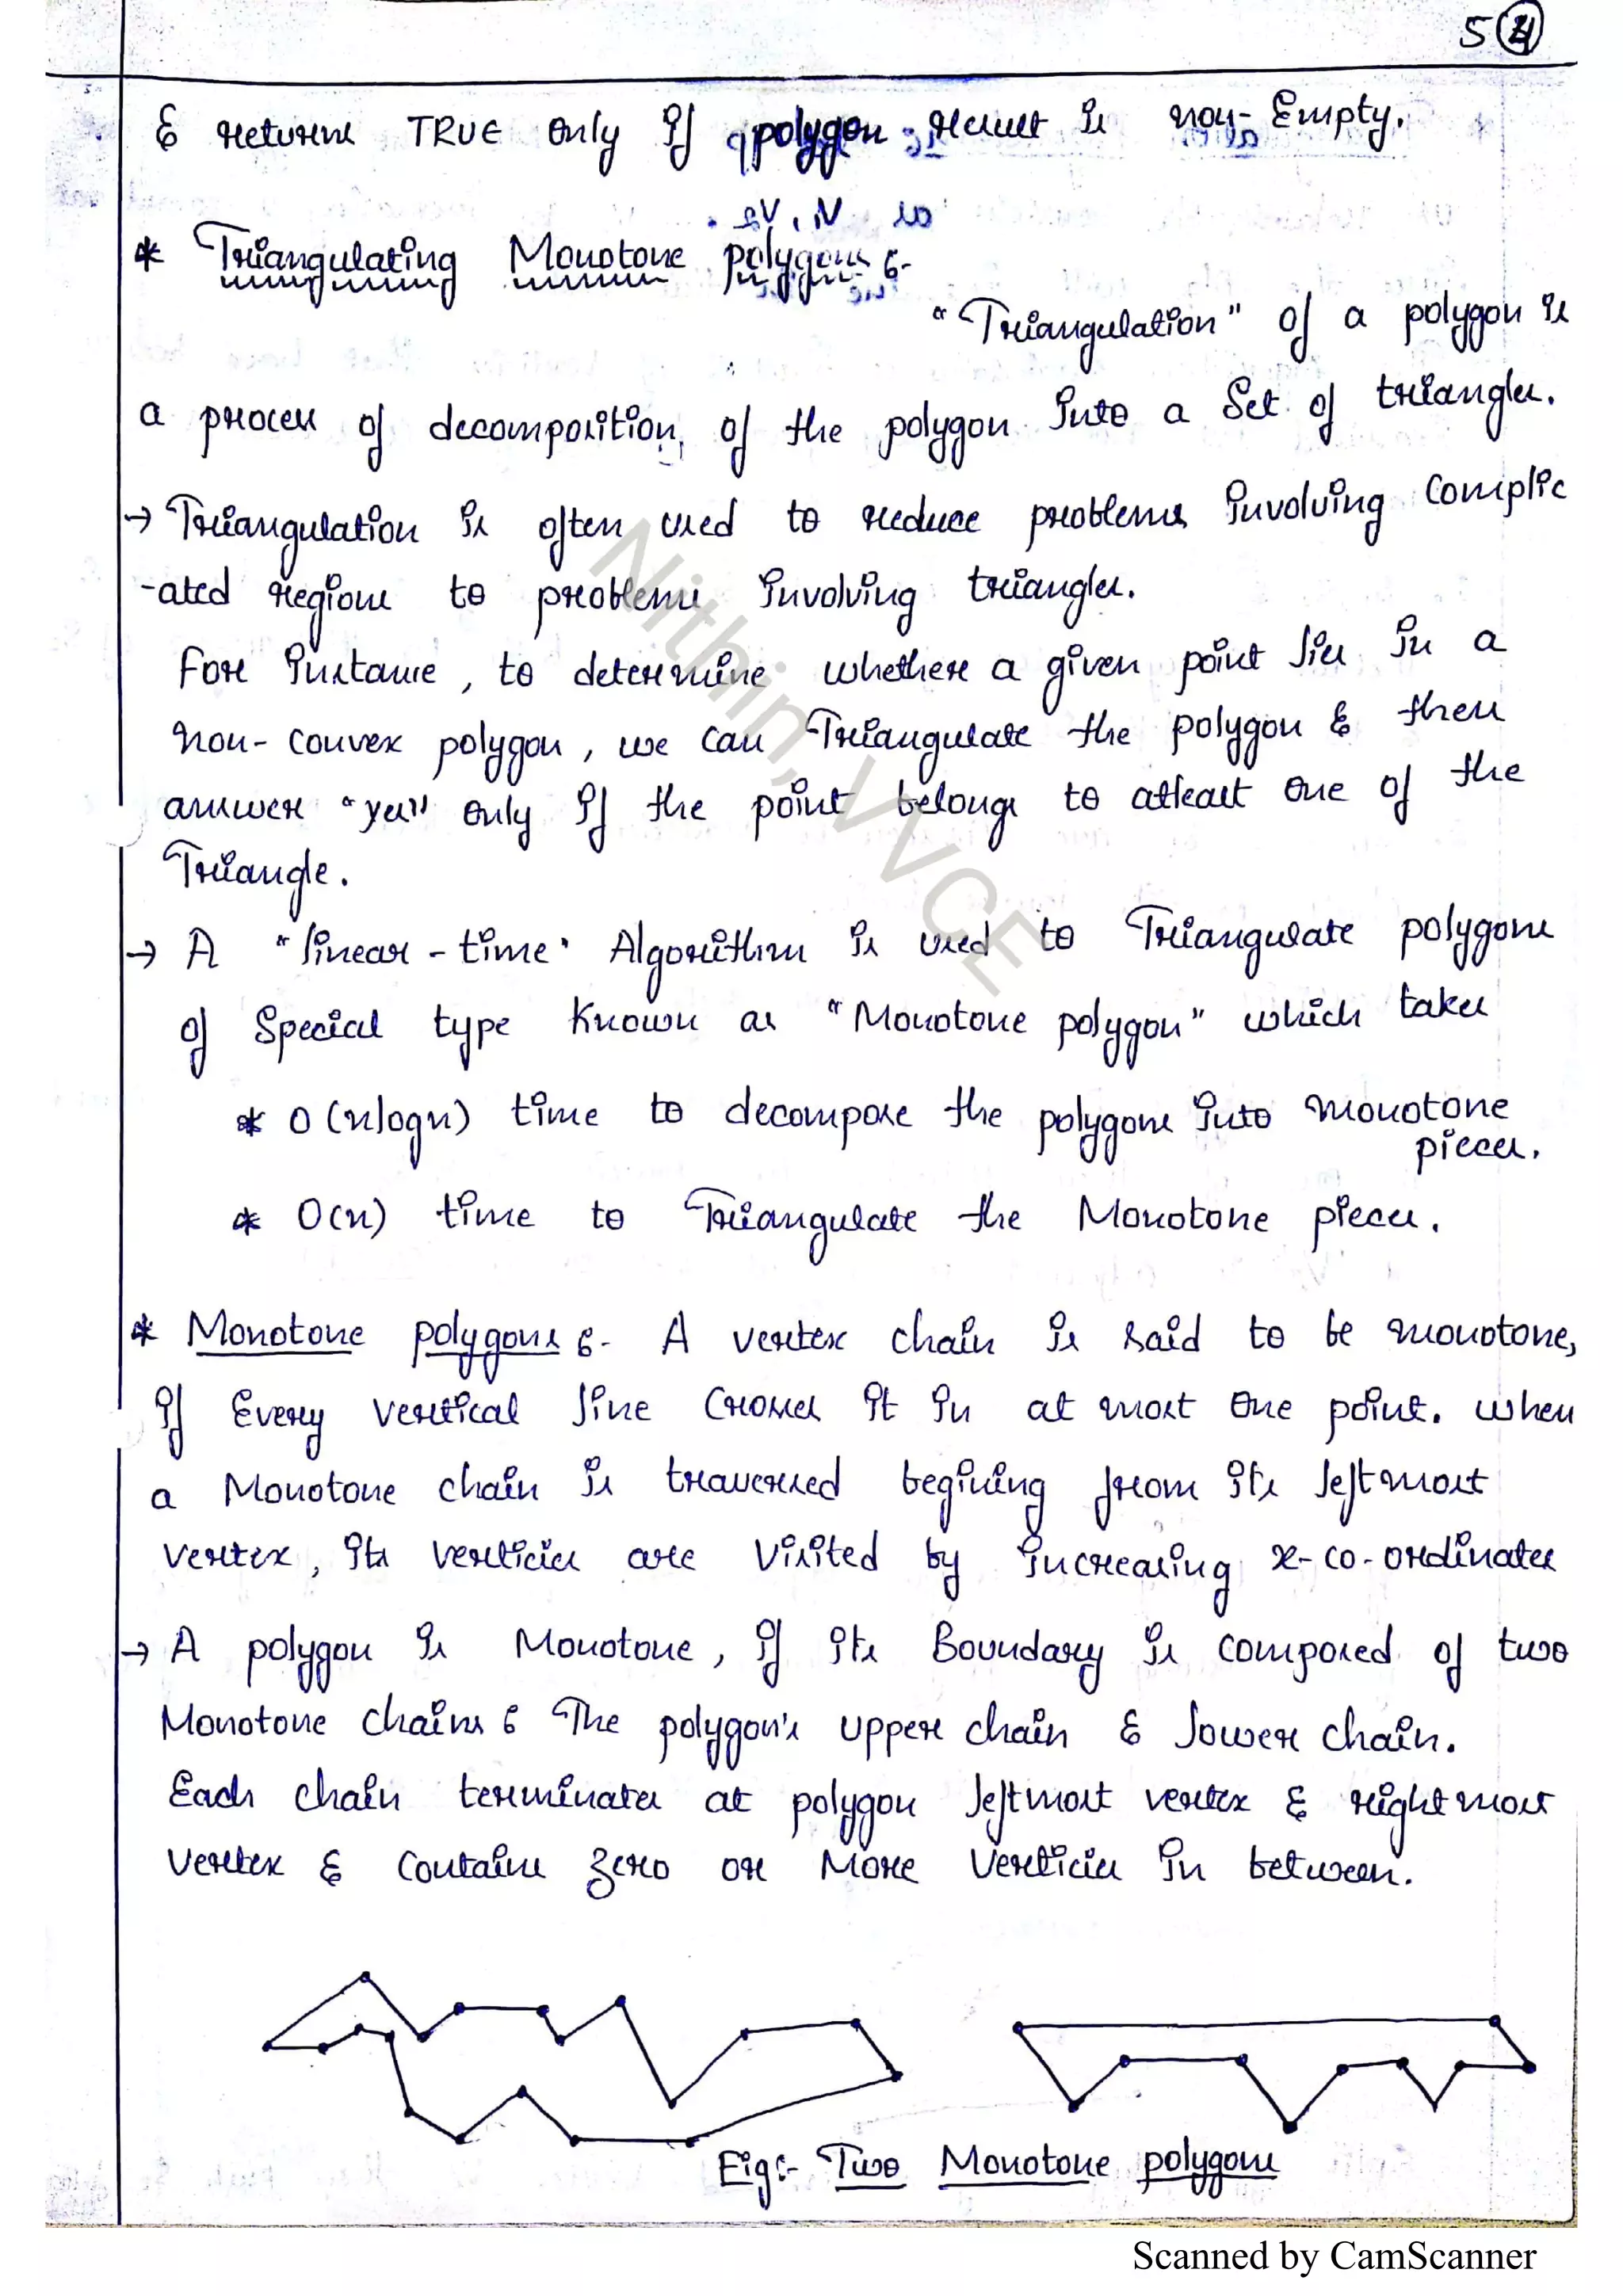 5 4
& returns TRUE only if polygon result is non-Empty.
* Triangulating Monotone polygons :-
"Triangulation" of a polygon is
a process of decomposition of the polygon into a Set of triangles.
→ Triangulation is often used to reduce problems involving complic
-ated regions to problems involving triangles.
For instance, to determine whether a given point lies in a
non-convex polygon, we can Triangulate the polygon & then
answer "yes" only if the point belongs to atleast one of the
Triangle.
→ A "linear-time" Algorithm is used to Triangulate polygons
of Special type known as "Monotone polygon" which takes
* O(nlogn) time to decompose the polygons into monotone
pieces.
* O(n) time to Triangulate the Monotone pieces.
* Monotone polygons :- A vertex chain is said to be monotone,
if Every vertical line crosses it in at most one point. when
a Monotone chain is traversed begining from its leftmost
vertex, its verticies are visited by increasing x-co-ordinates
→ A polygon is Monotone, if its Boundary is composed of two
Monotone chains : The polygon's upper chain & lower chain.
Each chain terminates at polygon leftmost vertex & rightmost
vertex & contains zero or More verticies in between.
Fig:- Two Monotone polygons
Nithin, VVCE
Scanned by CamScanner